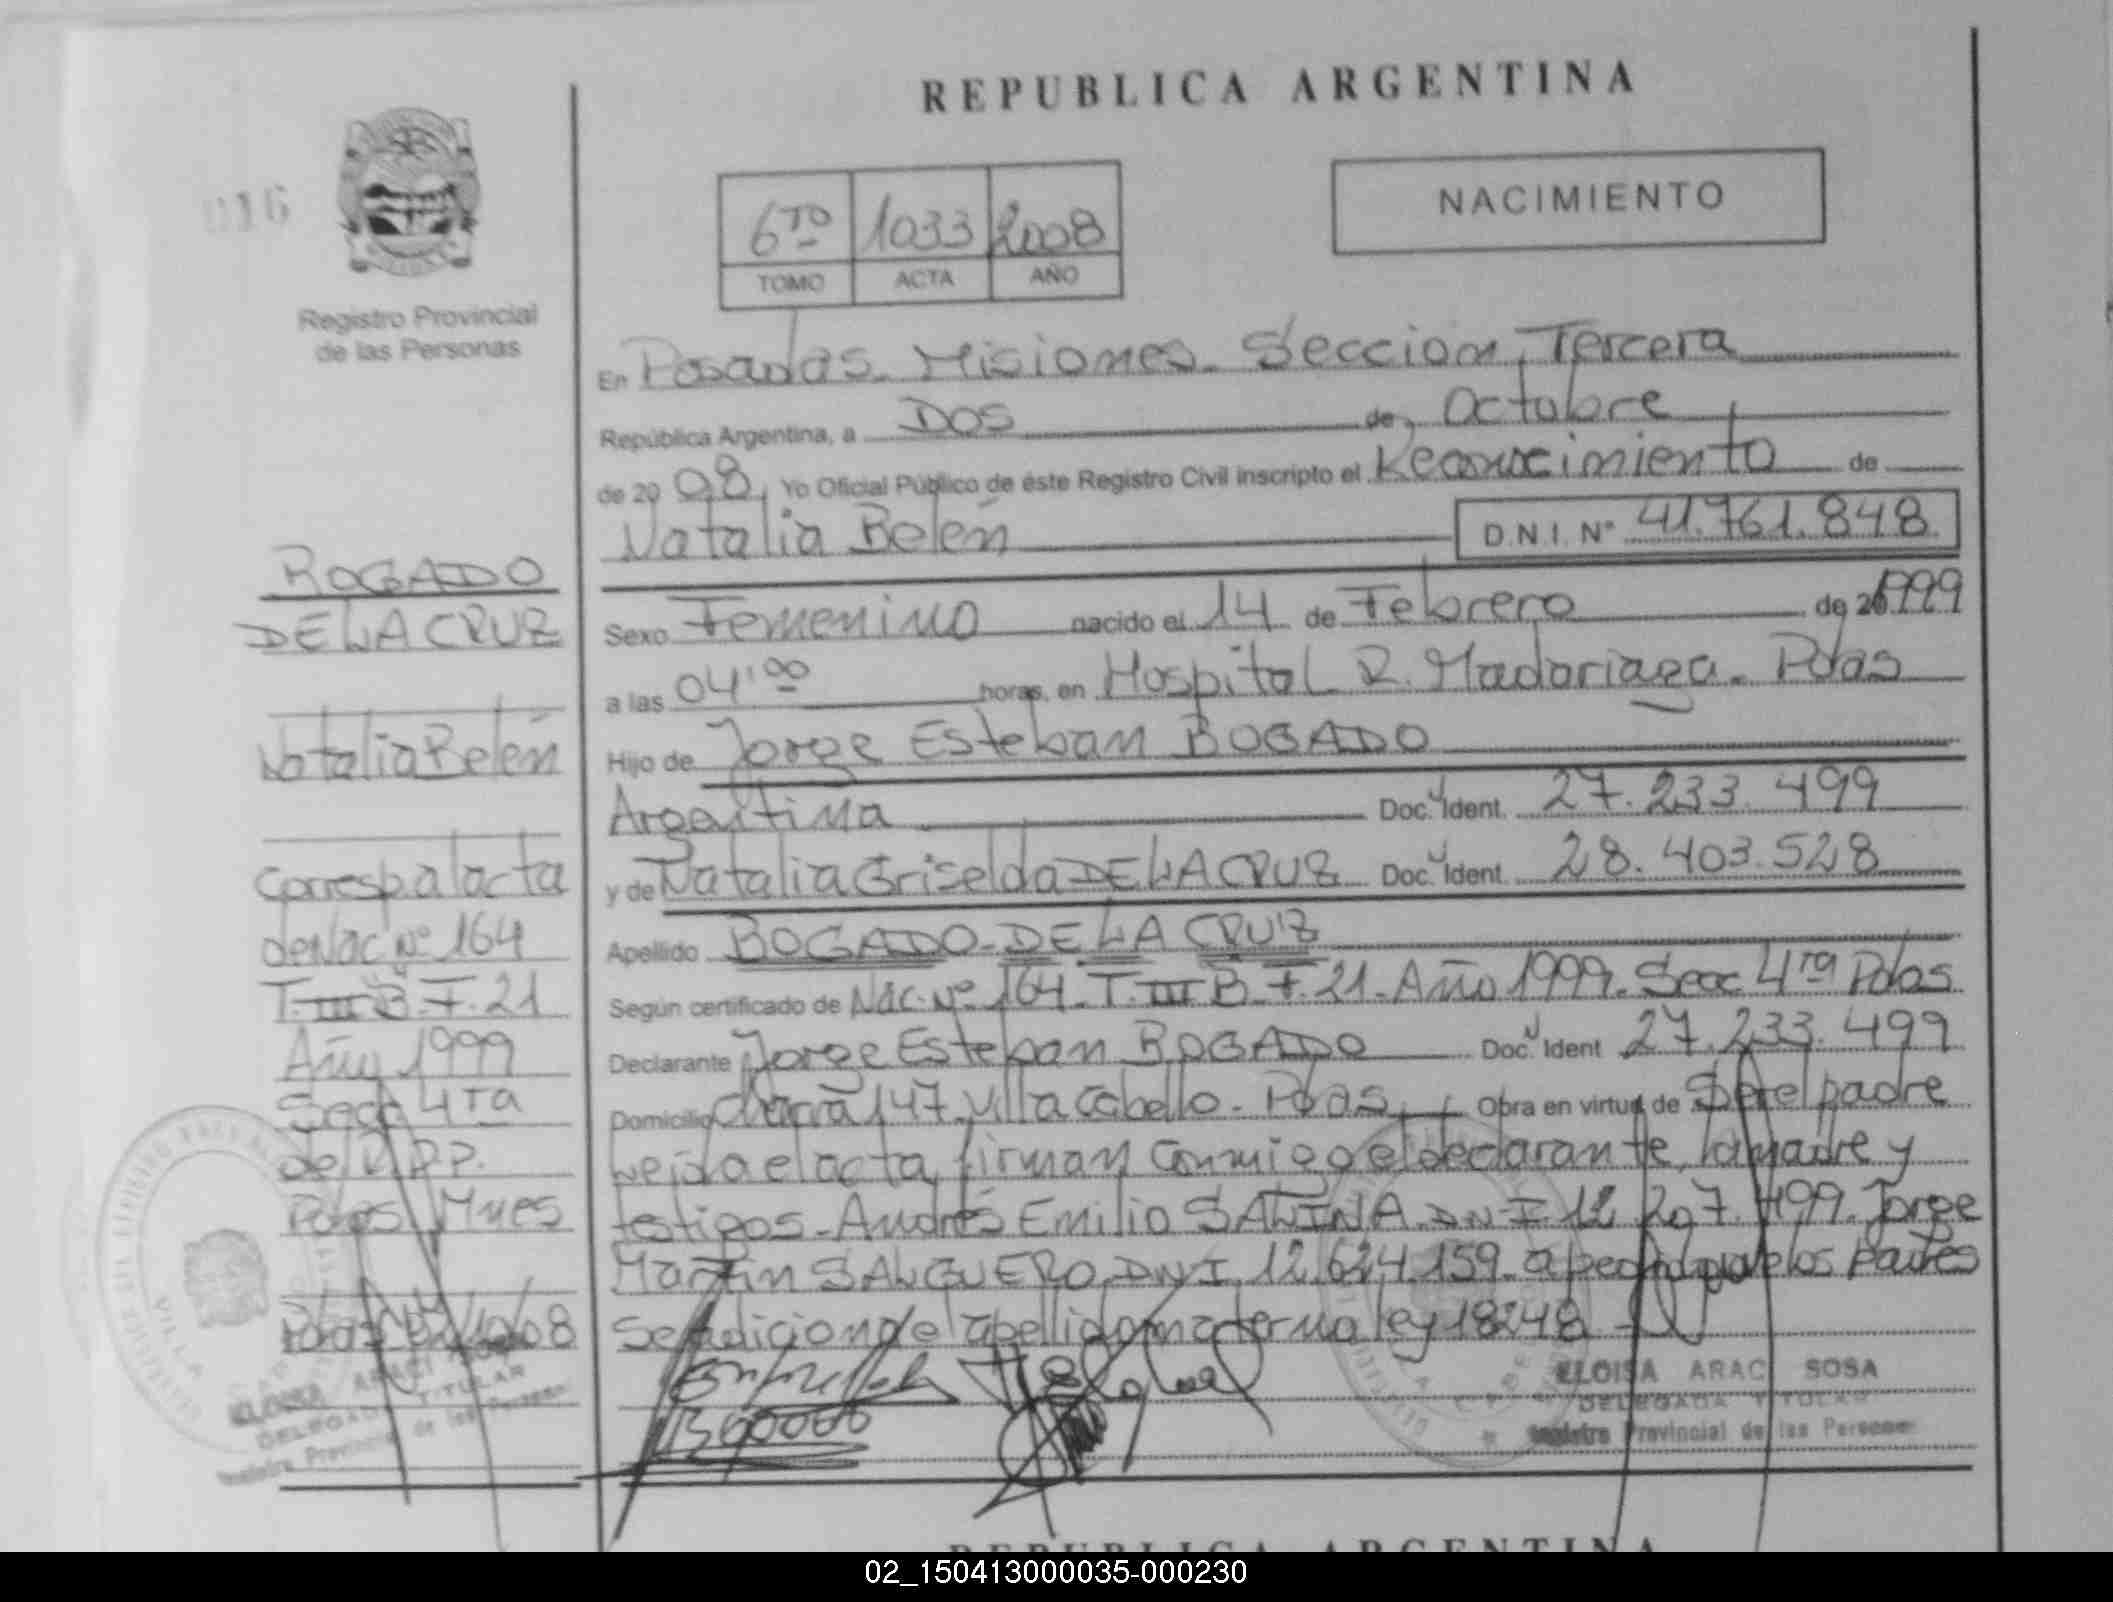 REPUBLICA ARGENTINA
016
NACIMIENTO
6TO 1033 2008
TOMO ACTA AÑO
Registro Provincial
de las Personas
En Posadas. Misiones. Sección, Tercera
República Argentina, a DOS de, Octubre
de 20 08, Yo Oficial Público de éste Registro Civil inscripto el Reconocimiento de
Natalia Belén D.N.I. Nº 41.761.848
Sexo Femenino nacido el 14 de Febrero de 20 1999
a las 04'00 horas, en Hospital R. Madariaga. Pdas
Hijo de Jorge Esteban BOGADO
Argentina Doc. Ident. 27.233.499
y de Natalia Griselda DE LA CRUZ Doc. Ident. 28.403.528
Apellido BOGADO-DE LA CRUZ
Según certificado de Nac. Nº 164. T. III B. F. 21. Año 1999. Secc 4ta Pdas
Declarante Jorge Esteban BOGADO Doc. Ident 27.233.499
Domicilio Chacra 147. Villa Cabello. Pdas, Obra en virtud de Ser el padre
Leída el acta, firman conmigo el declarante, la madre y
testigos. Andrés Emilio SALINA. DNI. 12.207.499. Jorge
Martin SALGUERO DNI. 12.624.159. a pedido de los padres
Se adiciona el apellido materno ley 18248
BOGADO
DE LA CRUZ
Natalia Belén
Corresp. al acta
de Nac Nº 164
T. III B. F. 21
Año 1999
Secc 4ta
del R.P.P.
Pdas Mnes
Pdas 02/10/08
ELOISA ARACI
DELEGADA TITULAR
Registro Provincial de las Personas
ELOISA ARAC SOSA
DELEGADA TITULAR
Registro Provincial de las Personas
REPUBLICA ARGENTINA
02_150413000035-000230